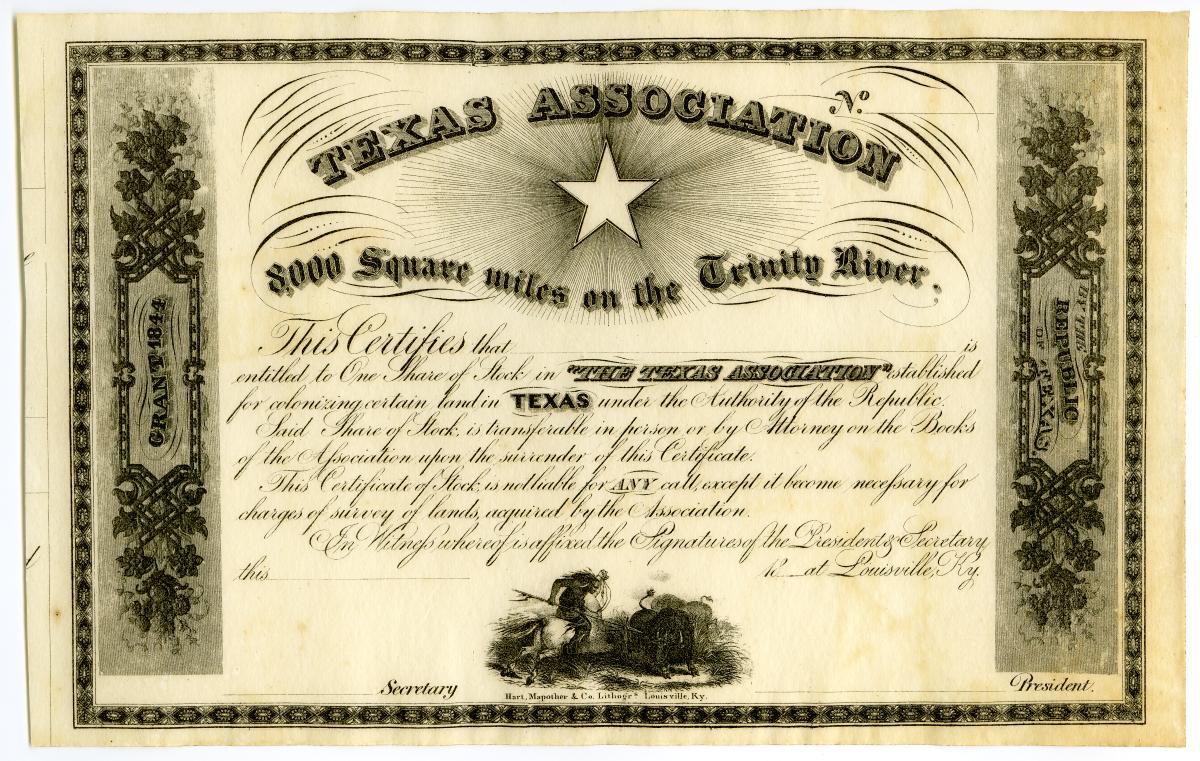 TEXAS ASSOCIATION
No
8,000 Square miles on the Trinity River.
This Certifies that is
entitled to One Share of Stock in "THE TEXAS ASSOCIATION" established
for colonizing certain land in TEXAS under the Authority of the Republic.
Said Share of Stock, is transferable in person or by Attorney on the Books
of the Association upon the surrender of this Certificate.
This Certificate of Stock, is not liable for ANY call, except it become necessary for
charges of survey of lands, acquired by the Association.
In Witness whereof is affixed the Signatures of the President & Secretary
this 18 at Louisville, Ky.
Secretary
President.
Hart, Mapother & Co. Lithogrs. Louisville, Ky.
GRANT 1844
BY THE
REPUBLIC
OF TEXAS